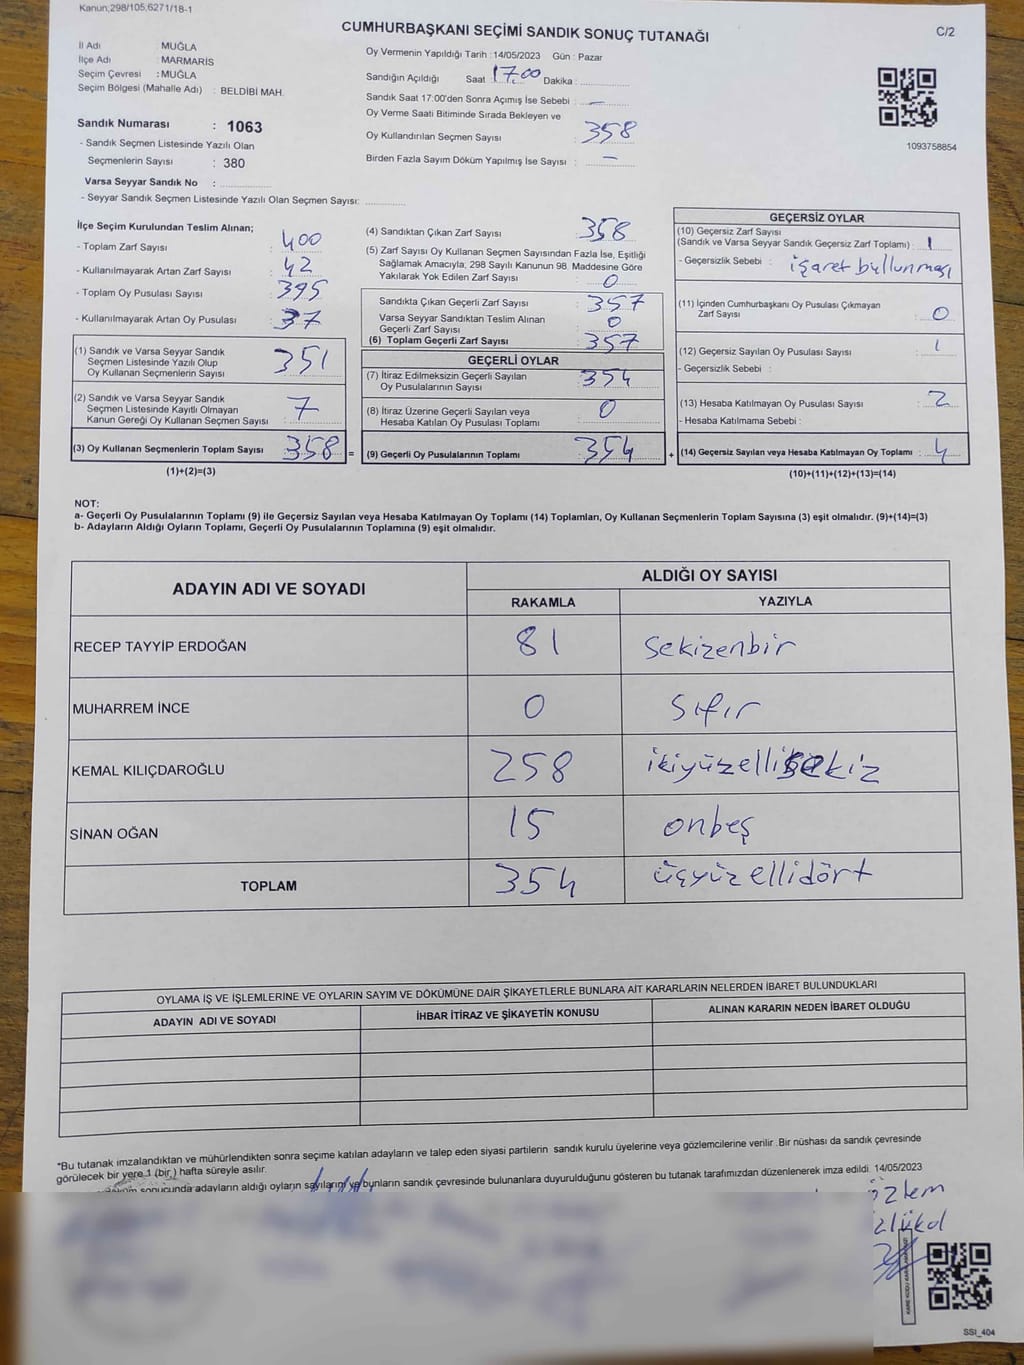 Kanun,298/105,6271/18-1
CUMHURBAŞKANI SEÇİMİ SANDIK SONUÇ TUTANAĞI
C/2
İl Adı MUĞLA
İlçe Adı : MARMARİS
Seçim Çevresi : MUĞLA
Seçim Bölgesi (Mahalle Adı) : BELDİBİ MAH.
Sandık Numarası : 1063
- Sandık Seçmen Listesinde Yazılı Olan
Seçmenlerin Sayısı : 380
Varsa Seyyar Sandık No :
- Seyyar Sandık Seçmen Listesinde Yazılı Olan Seçmen Sayısı:
Oy Vermenin Yapıldığı Tarih :14/05/2023 Gün : Pazar
Sandığın Açıldığı Saat : 17.00 Dakika :
Sandık Saat 17:00'den Sonra Açımış İse Sebebi : —
Oy Verme Saati Bitiminde Sırada Bekleyen ve
Oy Kullandırılan Seçmen Sayısı : 358
Birden Fazla Sayım Döküm Yapılmış İse Sayısı : —
1093758854
İlçe Seçim Kurulundan Teslim Alınan;
- Toplam Zarf Sayısı : 400
- Kullanılmayarak Artan Zarf Sayısı : 42
- Toplam Oy Pusulası Sayısı : 395
- Kullanılmayarak Artan Oy Pusulası : 37
(1) Sandık ve Varsa Seyyar Sandık
Seçmen Listesinde Yazılı Olup
Oy Kullanan Seçmenlerin Sayısı : 351
(2) Sandık ve Varsa Seyyar Sandık
Seçmen Listesinde Kayıtlı Olmayan
Kanun Gereği Oy Kullanan Seçmen Sayısı : 7
(3) Oy Kullanan Seçmenlerin Toplam Sayısı : 358 =
(1)+(2)=(3)
(4) Sandıktan Çıkan Zarf Sayısı : 358
(5) Zarf Sayısı Oy Kullanan Seçmen Sayısından Fazla İse, Eşitliği
Sağlamak Amacıyla, 298 Sayılı Kanunun 98. Maddesine Göre
Yakılarak Yok Edilen Zarf Sayısı : 0
Sandıkta Çıkan Geçerli Zarf Sayısı : 357
Varsa Seyyar Sandıktan Teslim Alınan
Geçerli Zarf Sayısı : 0
(6) Toplam Geçerli Zarf Sayısı : 357
GEÇERLİ OYLAR
(7) İtiraz Edilmeksizin Geçerli Sayılan
Oy Pusulalarının Sayısı : 354
(8) İtiraz Üzerine Geçerli Sayılan veya
Hesaba Katılan Oy Pusulası Toplamı : 0
(9) Geçerli Oy Pusulalarının Toplamı : 354 +
GEÇERSİZ OYLAR
(10) Geçersiz Zarf Sayısı
(Sandık ve Varsa Seyyar Sandık Geçersiz Zarf Toplamı) : 1
- Geçersizlik Sebebi : işaret bullunması
(11) İçinden Cumhurbaşkanı Oy Pusulası Çıkmayan
Zarf Sayısı : 0
(12) Geçersiz Sayılan Oy Pusulası Sayısı : 1
- Geçersizlik Sebebi :
(13) Hesaba Katılmayan Oy Pusulası Sayısı : 2
- Hesaba Katılmama Sebebi :
(14) Geçersiz Sayılan veya Hesaba Katılmayan Oy Toplamı : 4
(10)+(11)+(12)+(13)=(14)
NOT:
a- Geçerli Oy Pusulalarının Toplamı (9) ile Geçersiz Sayılan veya Hesaba Katılmayan Oy Toplamı (14) Toplamları, Oy Kullanan Seçmenlerin Toplam Sayısına (3) eşit olmalıdır. (9)+(14)=(3)
b- Adayların Aldığı Oyların Toplamı, Geçerli Oy Pusulalarının Toplamına (9) eşit olmalıdır.
ADAYIN ADI VE SOYADI
ALDIĞI OY SAYISI
RAKAMLA YAZIYLA
RECEP TAYYİP ERDOĞAN 81 Sekizenbir
MUHARREM İNCE 0 sıfır
KEMAL KILIÇDAROĞLU 258 ikiyüzellisekiz
SİNAN OĞAN 15 onbeş
TOPLAM 354 üçyüzellidört
OYLAMA İŞ VE İŞLEMLERİNE VE OYLARIN SAYIM VE DÖKÜMÜNE DAİR ŞİKAYETLERLE BUNLARA AİT KARARLARIN NELERDEN İBARET BULUNDUKLARI
ADAYIN ADI VE SOYADI İHBAR İTİRAZ VE ŞİKAYETİN KONUSU ALINAN KARARIN NEDEN İBARET OLDUĞU
"Bu tutanak imzalandıktan ve mühürlendikten sonra seçime katılan adayların ve talep eden siyasi partilerin sandık kurulu üyelerine veya gözlemcilerine verilir .Bir nüshası da sandık çevresinde
görülecek bir yere 1 (bir ) hafta süreyle asılır.
sonucunda adayların aldığı oyların sayılarını ve bunların sandık çevresinde bulunanlara duyurulduğunu gösteren bu tutanak tarafımızdan düzenlenerek imza edildi. 14/05/2023
SSİ_404